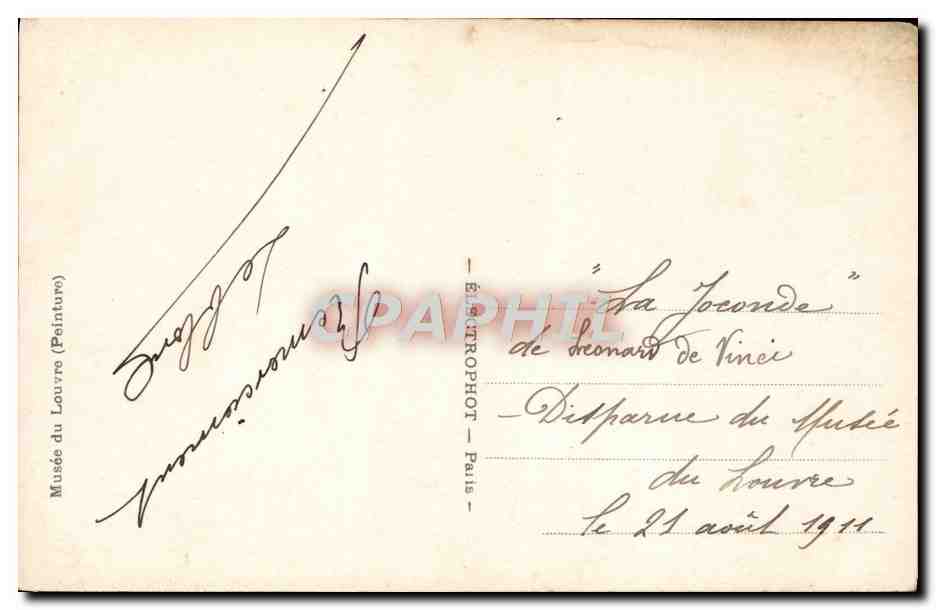 Musée du Louvre (Peinture)
— ÉLECTROPHOT — Paris —
CPAPHIL
"La Joconde"
de Léonard de Vinci
— Disparue du Musée
du Louvre
le 21 août 1911